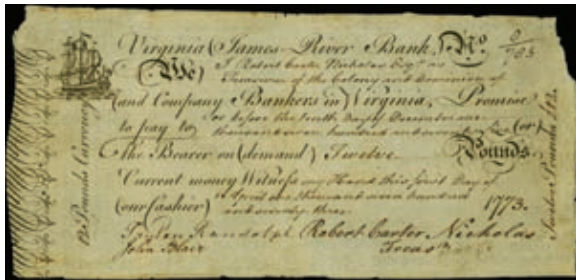 Virginia (James-River Bank,) No. 0/703
(We) I Robert Carter Nicholas Esqr. as
Treasurer of the Colony and Dominion of
(and Company Bankers in Virginia, Promise
or before the tenth Day of December one
to pay to thousand seven hundred and seventy (or)
the Bearer on (demand) Twelve Pounds.
Current money Witness my Hand this first Day of
(our Cashier) April one thousand seven hundred
and seventy three 1773.
Peyton Randolph Robert Carter Nicholas
John Blair Treasr
12 Pounds Currency
Twelve Pounds